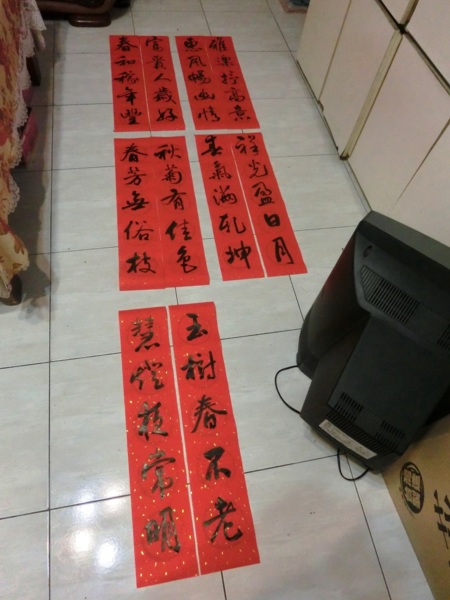 雅抒高意
惠風暢幽情
富貴人歲好
春和年豐
祥光盈日月
喜氣滿乾坤
秋菊有佳色
春芳無俗枝
玉樹春不老
慧燈夜常明